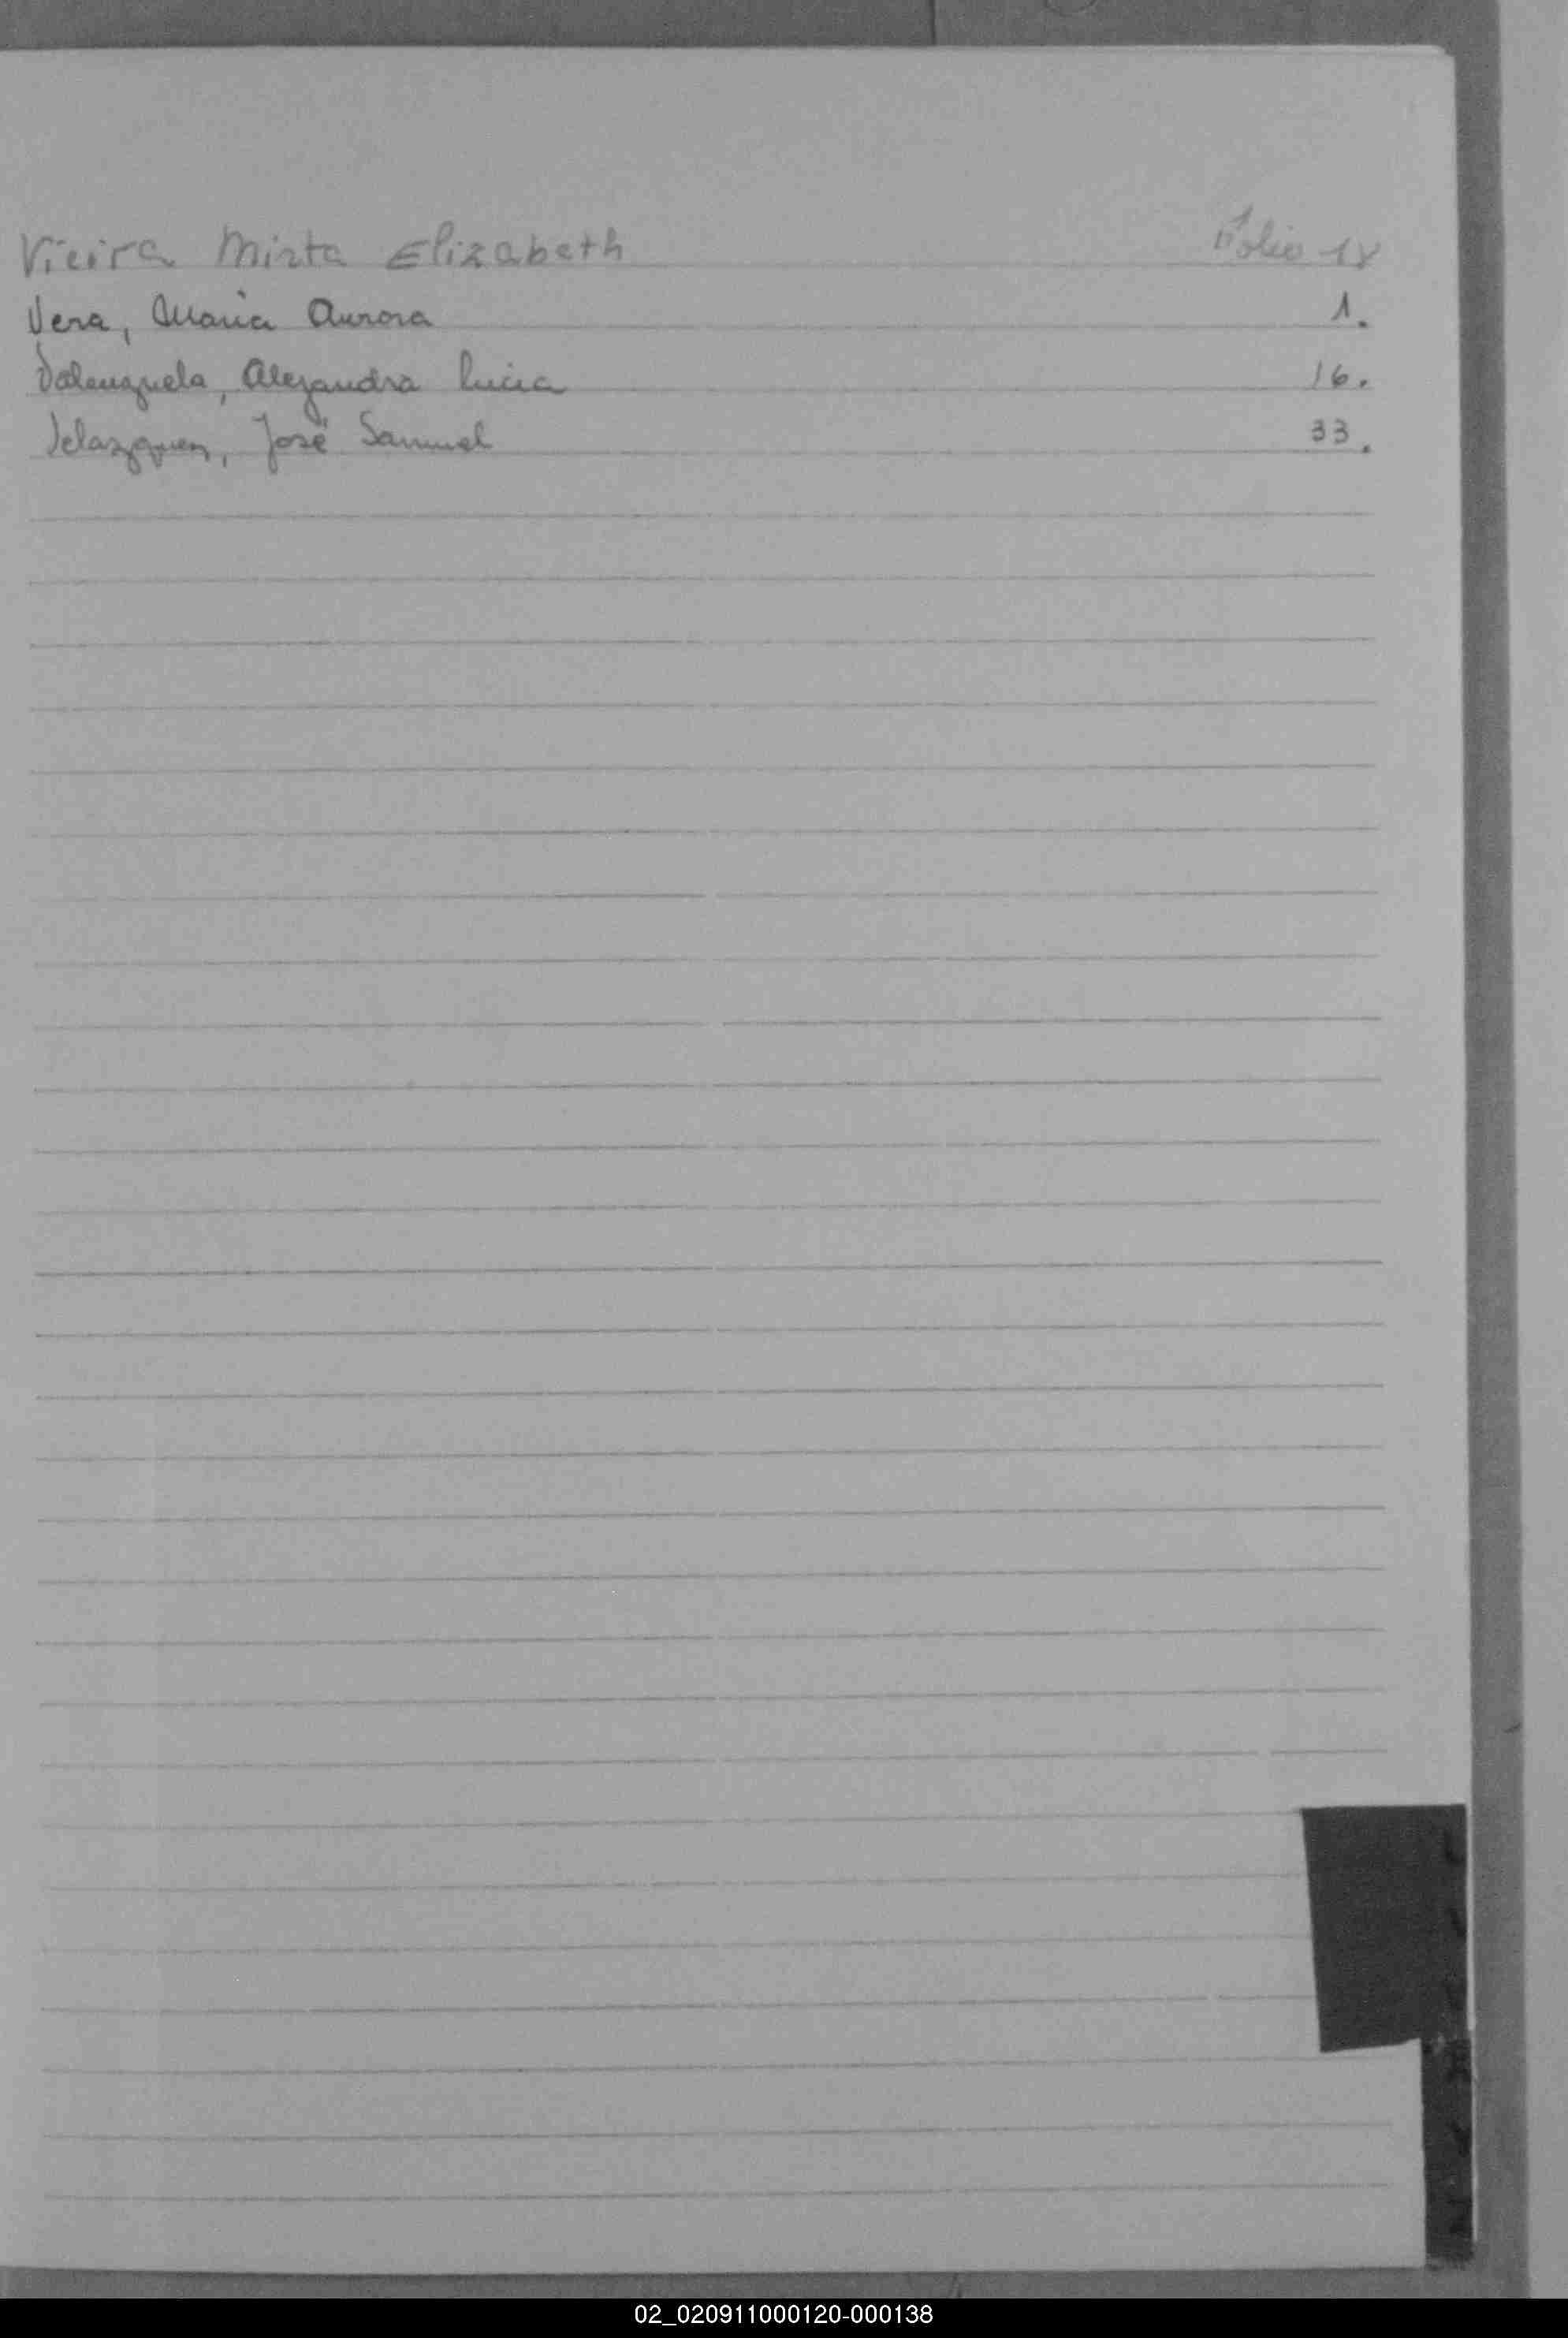 Vieira Mirta Elizabeth Folio 18
Vera, Maria Aurora 1.
Valenzuela, Alejandra Lucia 16.
Velazquez, José Samuel 33.
02_020911000120-000138